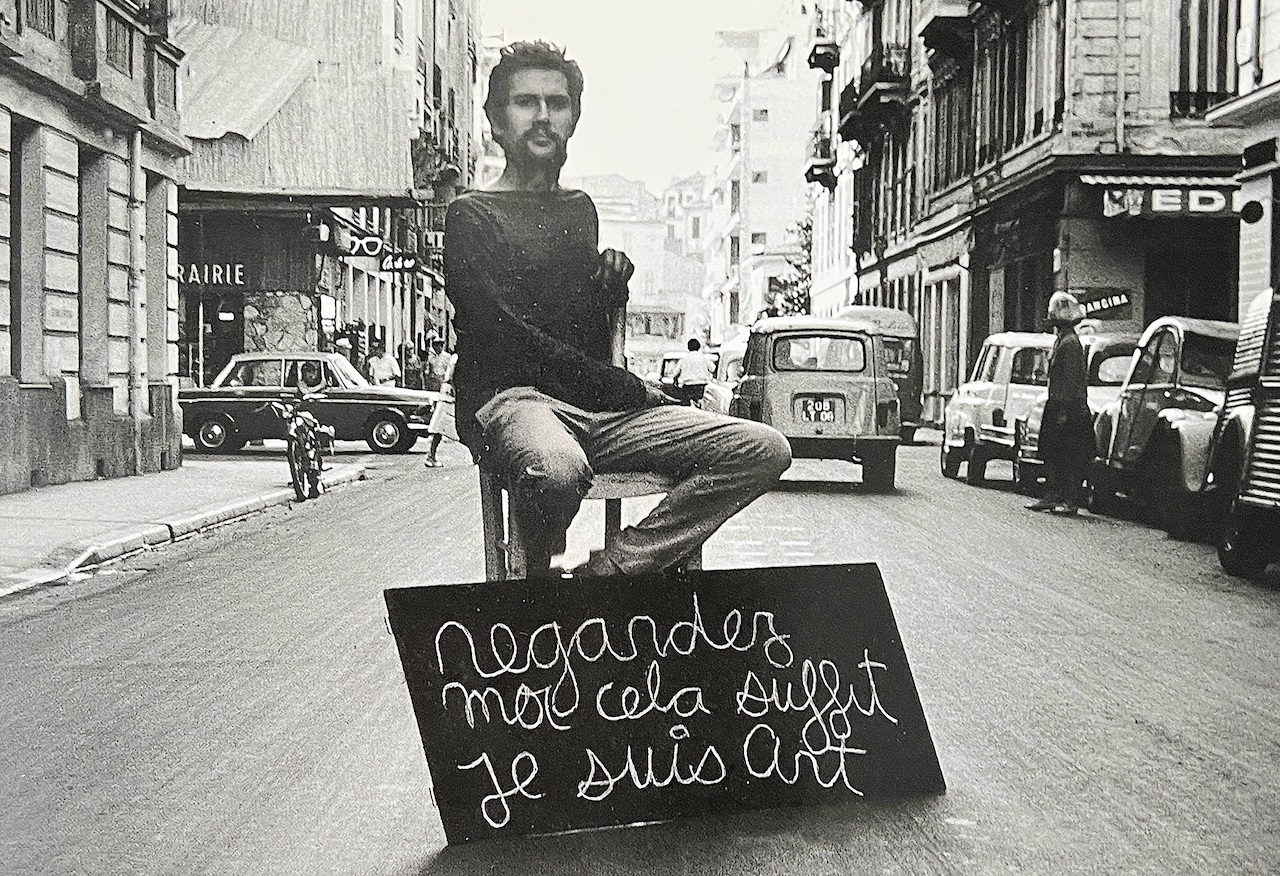 RAIRIE
EDI
ANGINA
regardez
moi cela suffit
je suis art